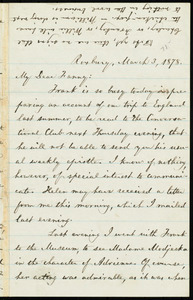 Roxbury, March 3, 1878.
My Dear Fanny:
Frank is so busy today in pre-
paring an account of our trip to England
last summer, to be read to the Conversa-
tional Club next Thursday evening, that
he will not be able to send you his usu-
al weekly epistle. I know of nothing
however, of special interest to communi-
cate. Helen may have received a letter
from me this morning, which I mailed
last evening.
Last evening I went with Frank
to the Museum, to see Madame Modjeska
in the character of Adrienne. Of course,
her acting was admirable, as it was when